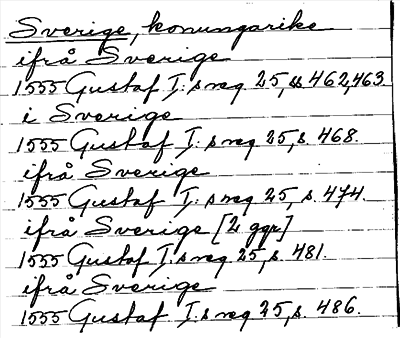 Sverige, konungarike
ifrå Sverige
1555 Gustaf I:s reg 25, ss. 462, 463.
i Sverige
1555 Gustaf I:s reg 25, s. 468.
ifrå Sverige
1555 Gustaf I:s reg 25, s. 474.
ifrå Sverige [2 ggr]
1555 Gustaf I:s reg 25, s. 481.
ifrå Sverige
1555 Gustaf I:s reg 25, s. 486.